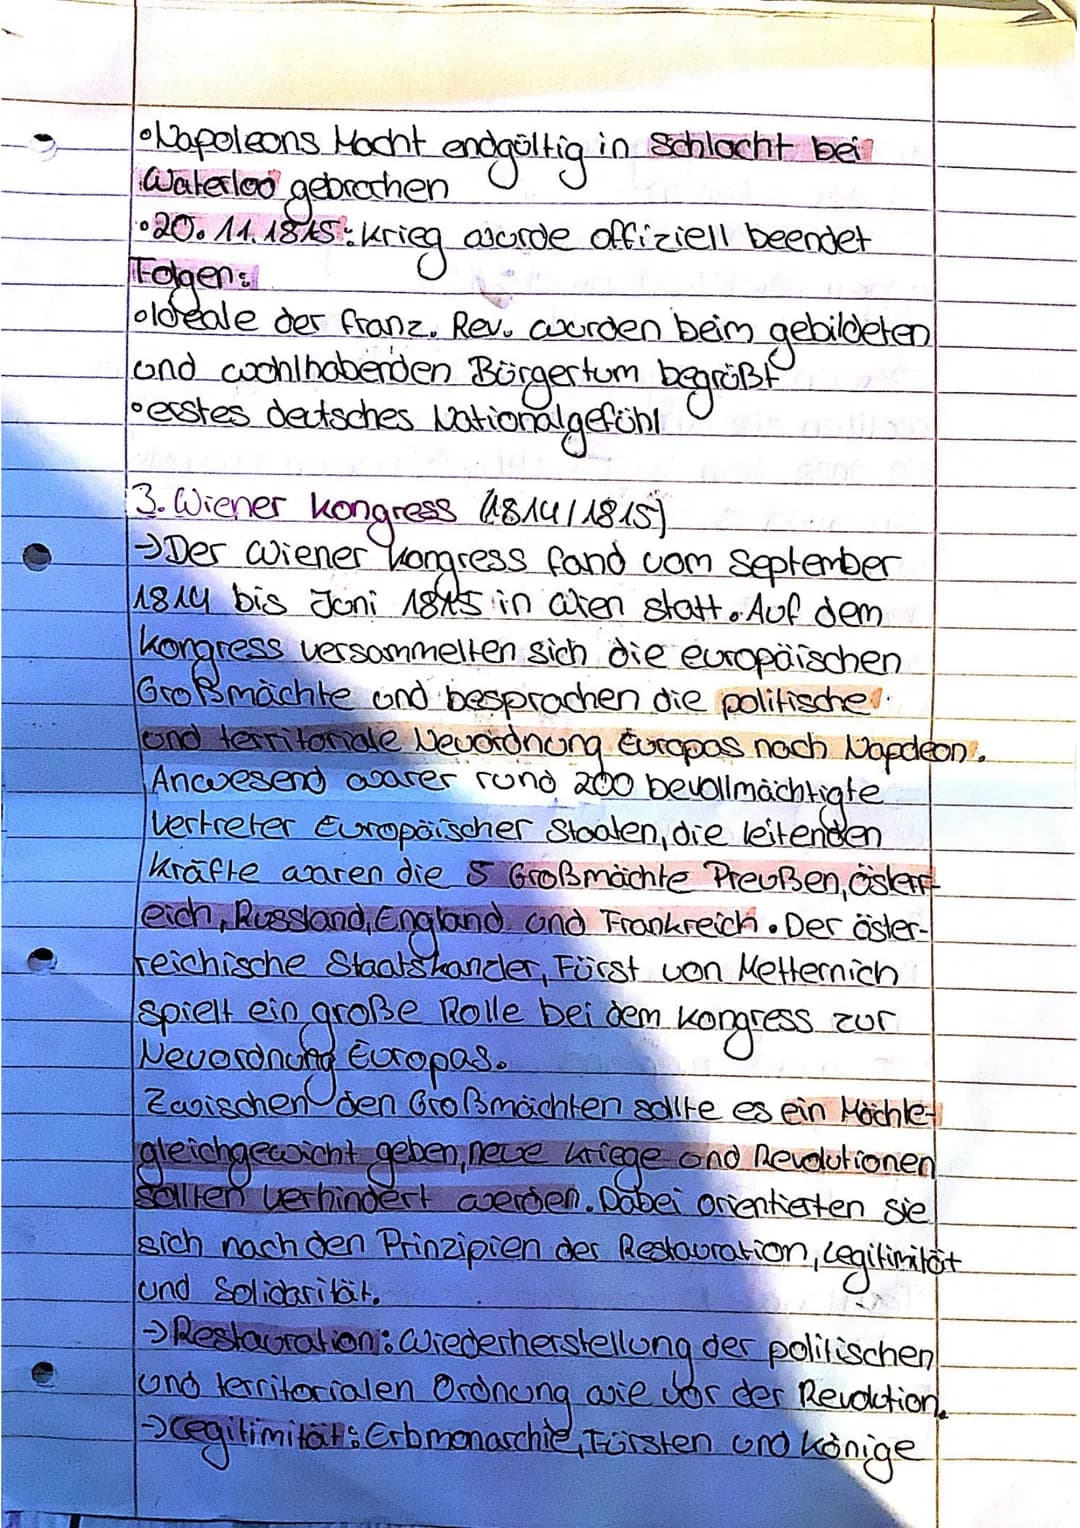 •Napoleons Macht endgültig in Schlacht bei
Waterloo gebrochen
•20.11.1815: Krieg wurde offiziell beendet
Folgen:
•Ideale der franz. Rev. wurden beim gebildeten
und wohlhabenden Bürgertum begrüßt
•erstes deutsches Nationalgefühl
3. Wiener Kongress (1814/1815)
→Der Wiener Kongress fand vom September
1814 bis Juni 1815 in Wien statt. Auf dem
Kongress versammelten sich die europäischen
Großmächte und besprachen die politische
und territoriale Neuordnung Europas nach Napoleon.
Anwesend waren rund 200 bevollmächtigte
Vertreter Europäischer Staaten, die leitenden
Kräfte waren die 5 Großmächte Preußen, Österr-
eich, Russland, England und Frankreich. Der öster-
reichische Staatskanzler, Fürst von Metternich
spielt ein große Rolle bei dem Kongress zur
Neuordnung Europas.
Zwischen den Großmächten sollte es ein Mächte-
gleichgewicht geben, neue Kriege und Revolutionen
sollten verhindert werden. Dabei orientierten sie
sich nach den Prinzipien der Restauration, Legitimität
und Solidarität.
→Restauration: Wiederherstellung der politischen
und territorialen Ordnung wie vor der Revolution.
→Legitimität: Erbmonarchie, Fürsten und Könige